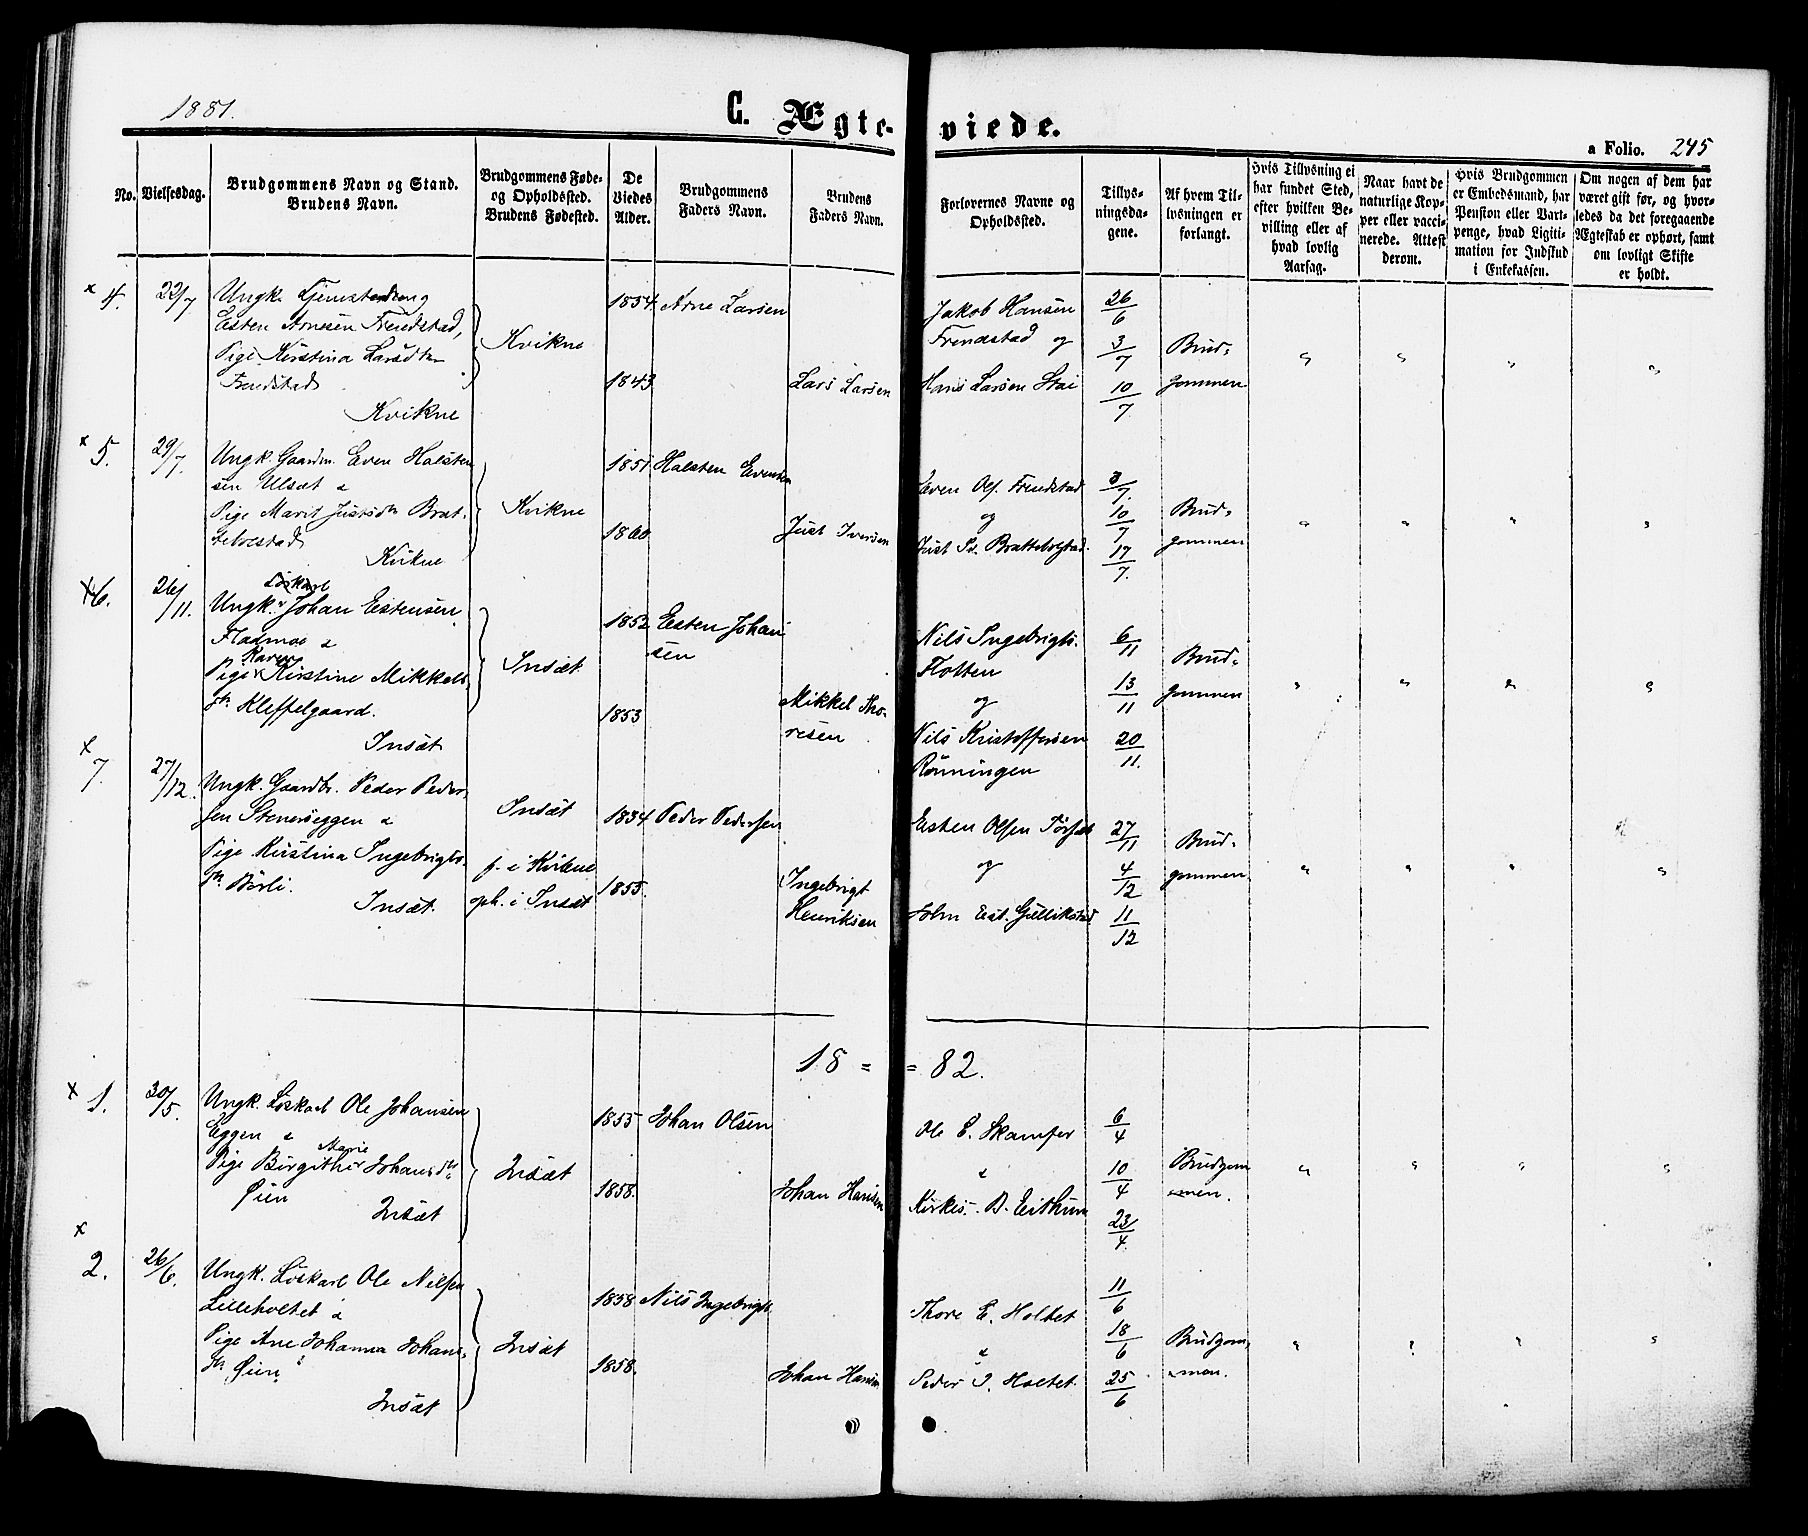 1881.
C. Ægte-viede.
a Folio. 245
No.
Vielsesdag.
Brudgommens Navn og Stand.
Brudens Navn.
Brudgommens Føde-
og Opholdssted.
Brudens Fødested.
De
Viedes
Alder.
Brudgommens
Faders Navn.
Brudens
Faders Navn.
Forlovernes Navne og
Opholdssted.
Tillys-
ningsda-
gene.
Af hvem Til-
lysningen er
forlangt.
Hvis Tillysning ei
har fundet Sted,
efter hvilken Be-
villing eller af
hvad lovlig
Aarsag.
Naar havt de
naturlige Kop-
per eller vacci-
nerede. Attest
derom.
Hvis Brudgommen
er Embedsmand, har
Pension eller Vart-
penge, hvad Ligiti-
mation for Indskud
i Enkekassen.
Om nogen af dem har
været gift før, og hvor-
ledes da det foregaaende
Ægteskab er ophørt, samt
om lovligt Skifte
er holdt.
x 4. 22/7
Ungk. Tjenestedreng
Esten Arnesen Frendstad,
Pige Kirstina Larsdtr
Frendstad
Kvikne
Kvikne
1854
1843
Arne Larsen
Lars Larsen
Jakob Hansen
Frendstad og
Hans Larsen Stai
26/6
3/7
10/7
Brud-
gommen
" " " "
x 5. 29/7
Ungk. Gaardm. Even Halsten
sen Ulsæt &
Pige Marit Justsdtr Brat-
telvestad
Kvikne
Kvikne
1851
1860
Halsten Evensen
Just Iversen
Even Ols. Frendstad
og
Just Iv.
3/7.
10/7
17/7.
Brud-
gommen
" " " "
x 6. 26/11.
Løskarl
Ungk. Johan Estensen
Fladmoe &
Karen
Pige Kirstine Mikkels-
dtr Kleffelgaard.
Insæt
Insæt
1852
1853
Esten Johan
sen
Mikkel Tho-
resen
Nils Ingebrigts.
Flotten
og
Nils Kristoffersen
Rønningen
6/11
13/11
20/11.
Brud-
gommen
" " " "
x 7. 27/12.
Ungk. Gaardbr. Peder Peder-
sen Stenerseggen &
Pige Kristina Ingebrigts-
dtr Børli.
Insæt.
Insæt
f. i Kvikne
oph. i Insæt
1834
1855.
Peder Pedersen
Ingebrigt
Henriksen
Esten Olsen
og
John Est. Gullikstad
27/11
4/12
11/12
Brud-
gommen
" " " "
18 = = 82.
x 1. 30/5.
Ungk. Løskarl Ole Johansen
Eggen &
Marie
Pige Birgithe Johansdtr
Øien
Insæt
Insæt
1855
1858.
Johan Olsen
Johan Hansen
Ole E. Skamfer
&
Kirkes. B. Eithun
6/4
10/4
23/4.
Brudgom
men.
" " " "
x 2. 26/6.
Ungk. Løskarl Ole Nilsen
Lilleholtet &
Pige Ane Johanna Johans-
dtr Øien
Insæt
Insæt
1858
1858.
Nils Ingebrigts.
Johan Hansen
Thore E. Holtet
&
Peder J. Holtet.
11/6
18/6
25/6
Brudgom
men.
" " " "